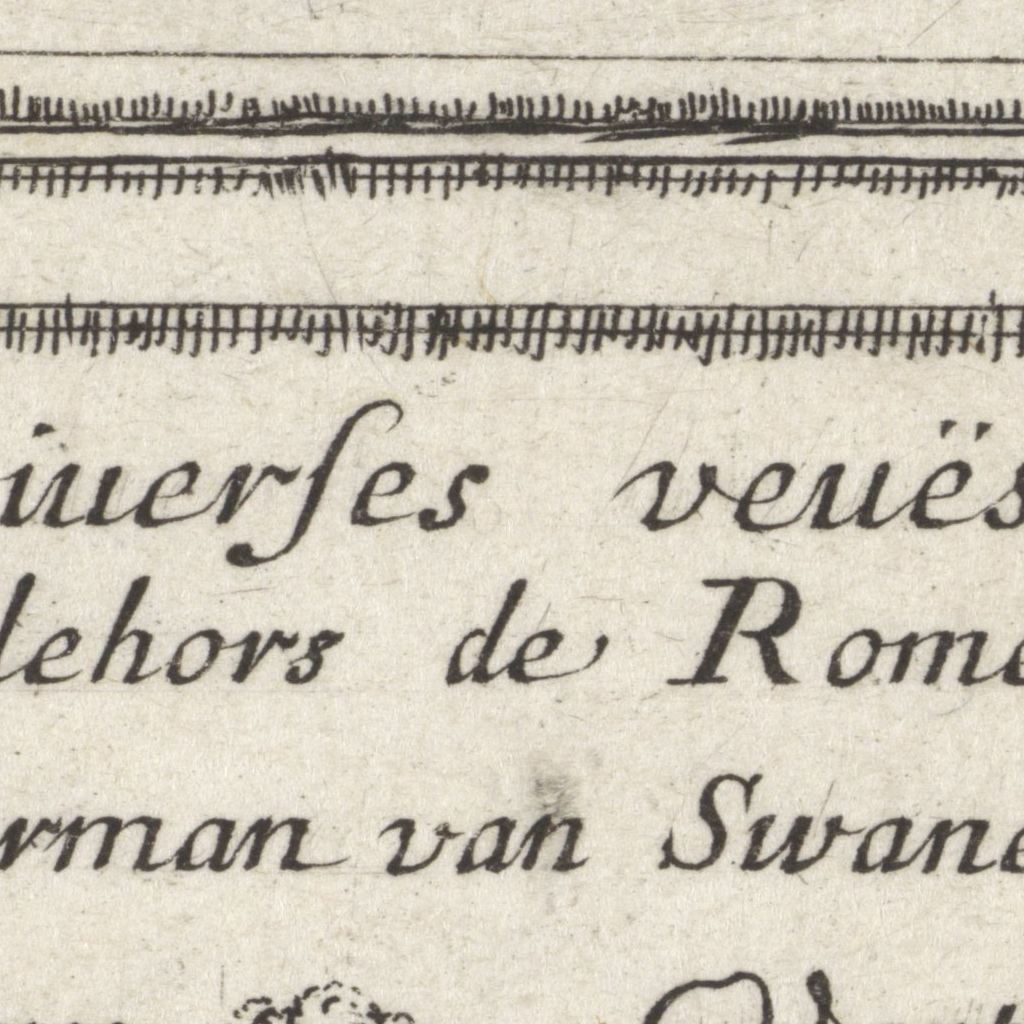 iuerſes veuës
dehors de Rome
rman van Swane